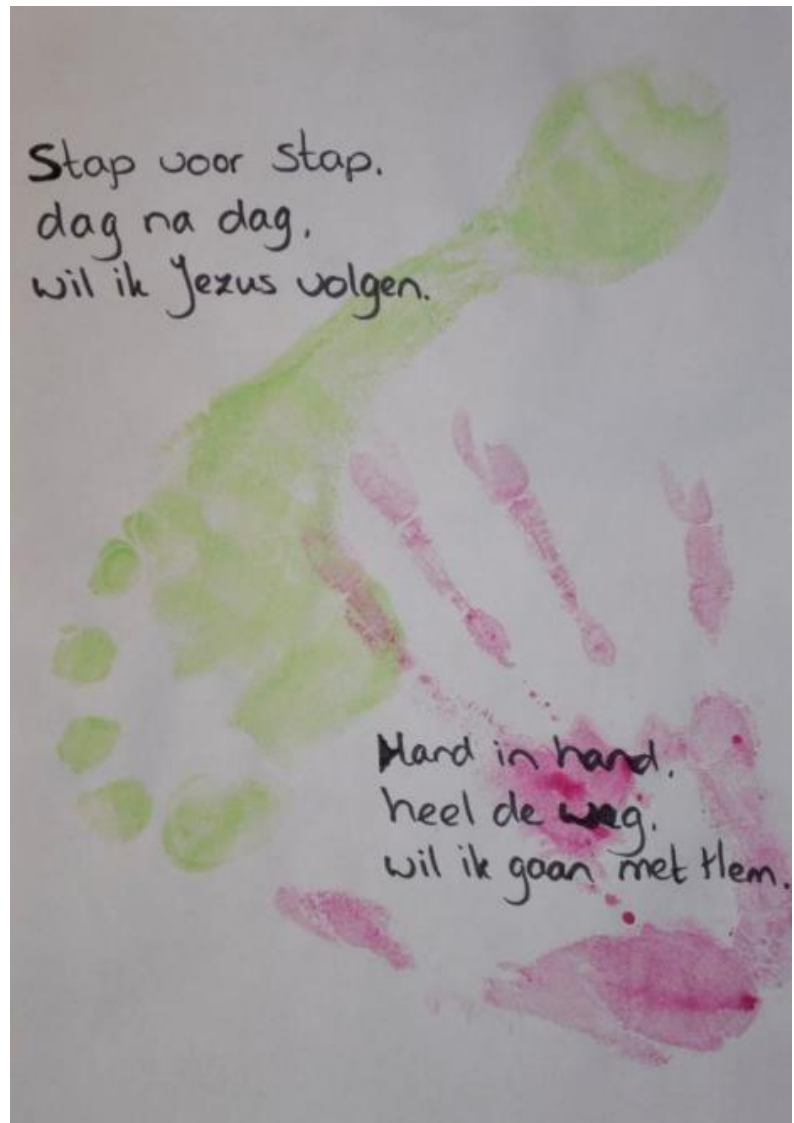 Stap voor stap.
dag na dag.
wil ik Jezus volgen.
Hand in hand.
heel de weg.
wil ik gaan met Hem.